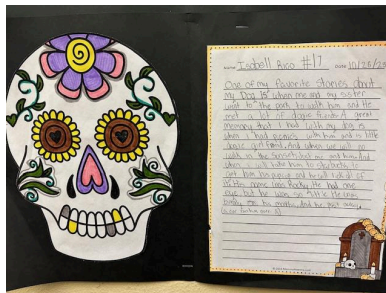 Name Isabell Rico #17 Date 10/26/20
One of my favorite stories about
my Dog is when me and my sister
went to the park to with him and He
met a lot of doggie friends. A great
memory that I had with my dog is
when I had picnics with him and is little
doggie girl friend. And when we will go
walk in the sunset, just me and him. And
when I will take him to
get him his and he will lick all of
it. His name was Rocky. He had one
eye but he was so cute. He was